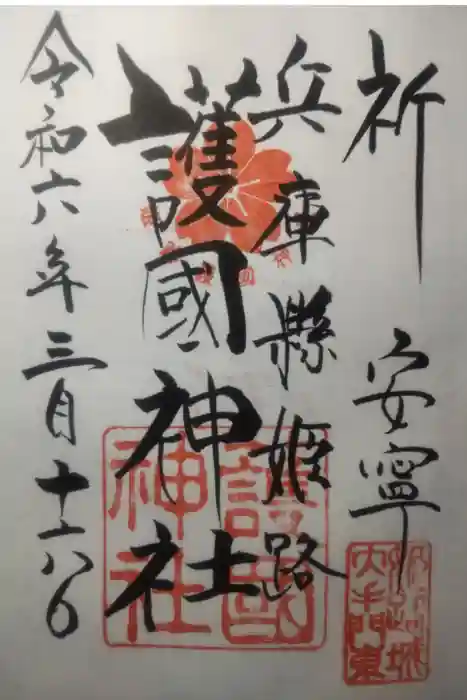 祈 安寧
兵庫縣姫路
護國神社
令和六年三月十六日
護國神社
姫路城大手門東